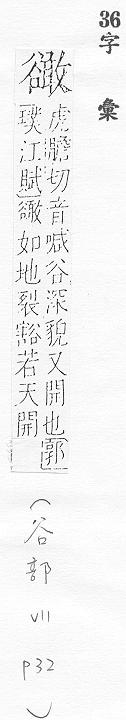 36字彙
豃
虎膽切音喊谷深貌又開也郭
璞江賦豃如地裂豁若天開
(谷部 VII p32)